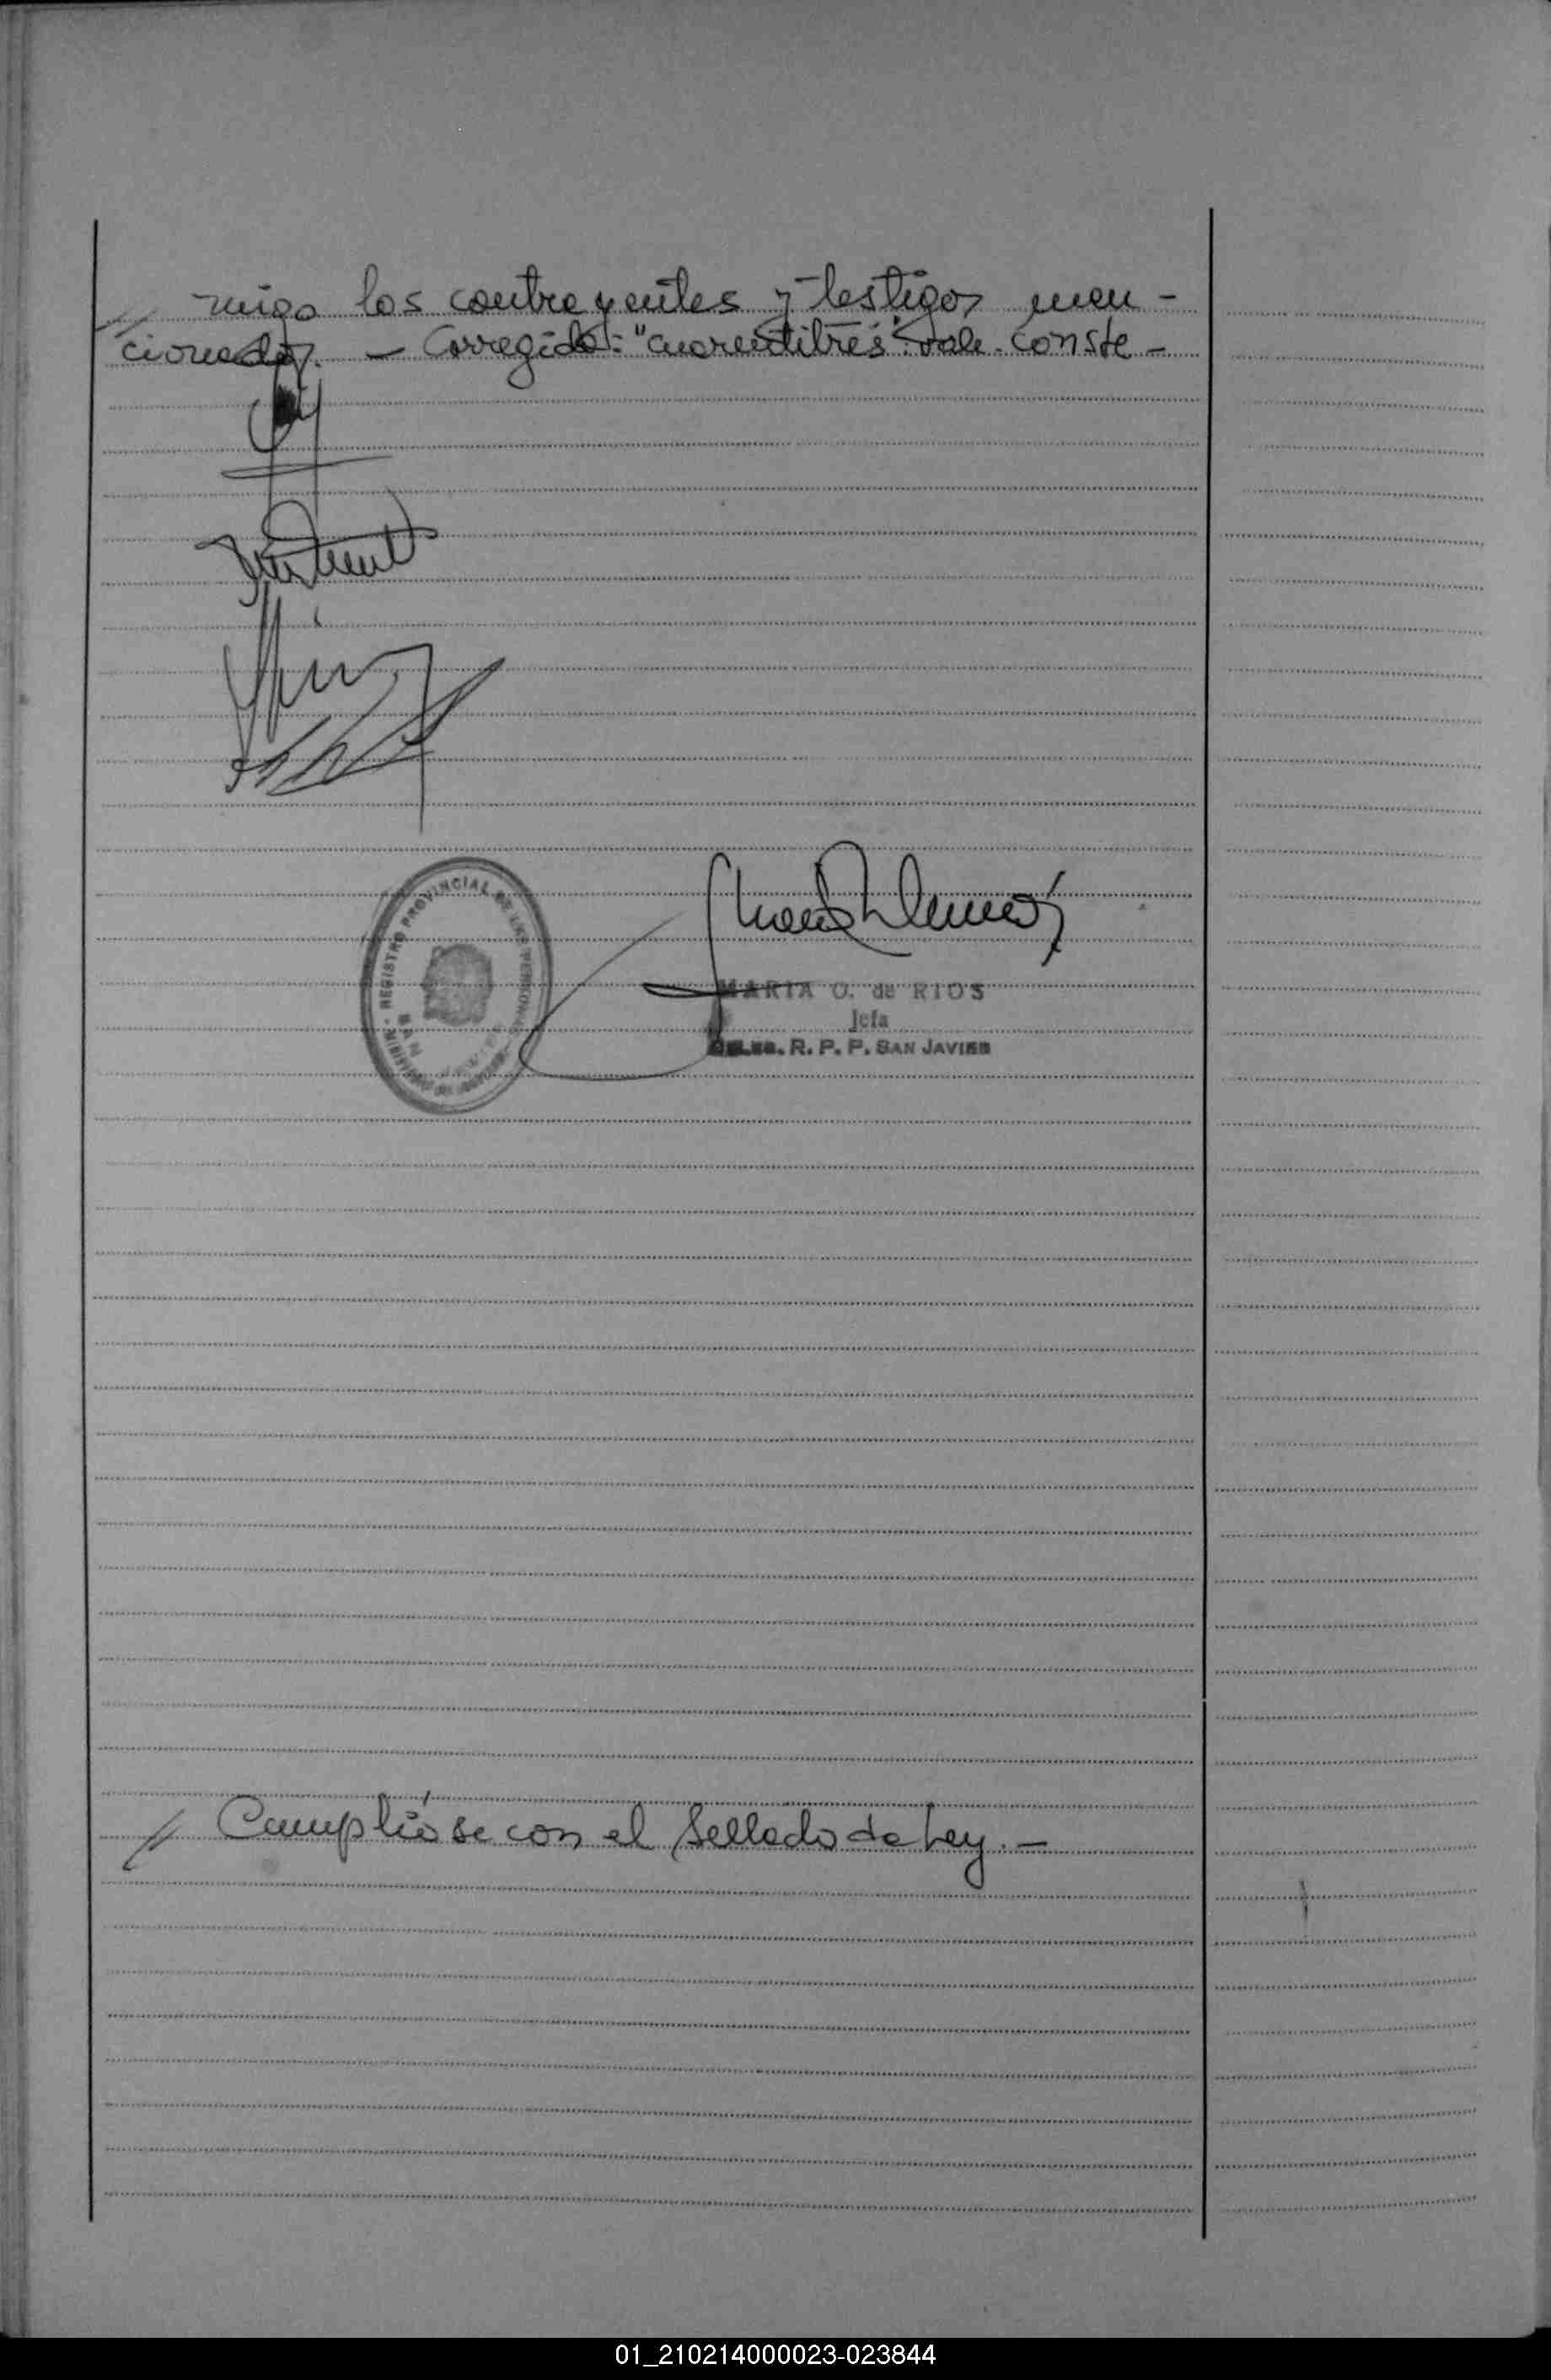 // migo los contrayentes y testigos men-
cionados. - Corregido: "cuarentitrés": vale. Conste -
REGISTRO PROVINCIAL DE LAS PERSONAS
MARIA O. de RIOS
Jefa
DELEG. R. P. P. SAN JAVIER
// Cumplióse con el Sellado de Ley. -
01_210214000023-023844